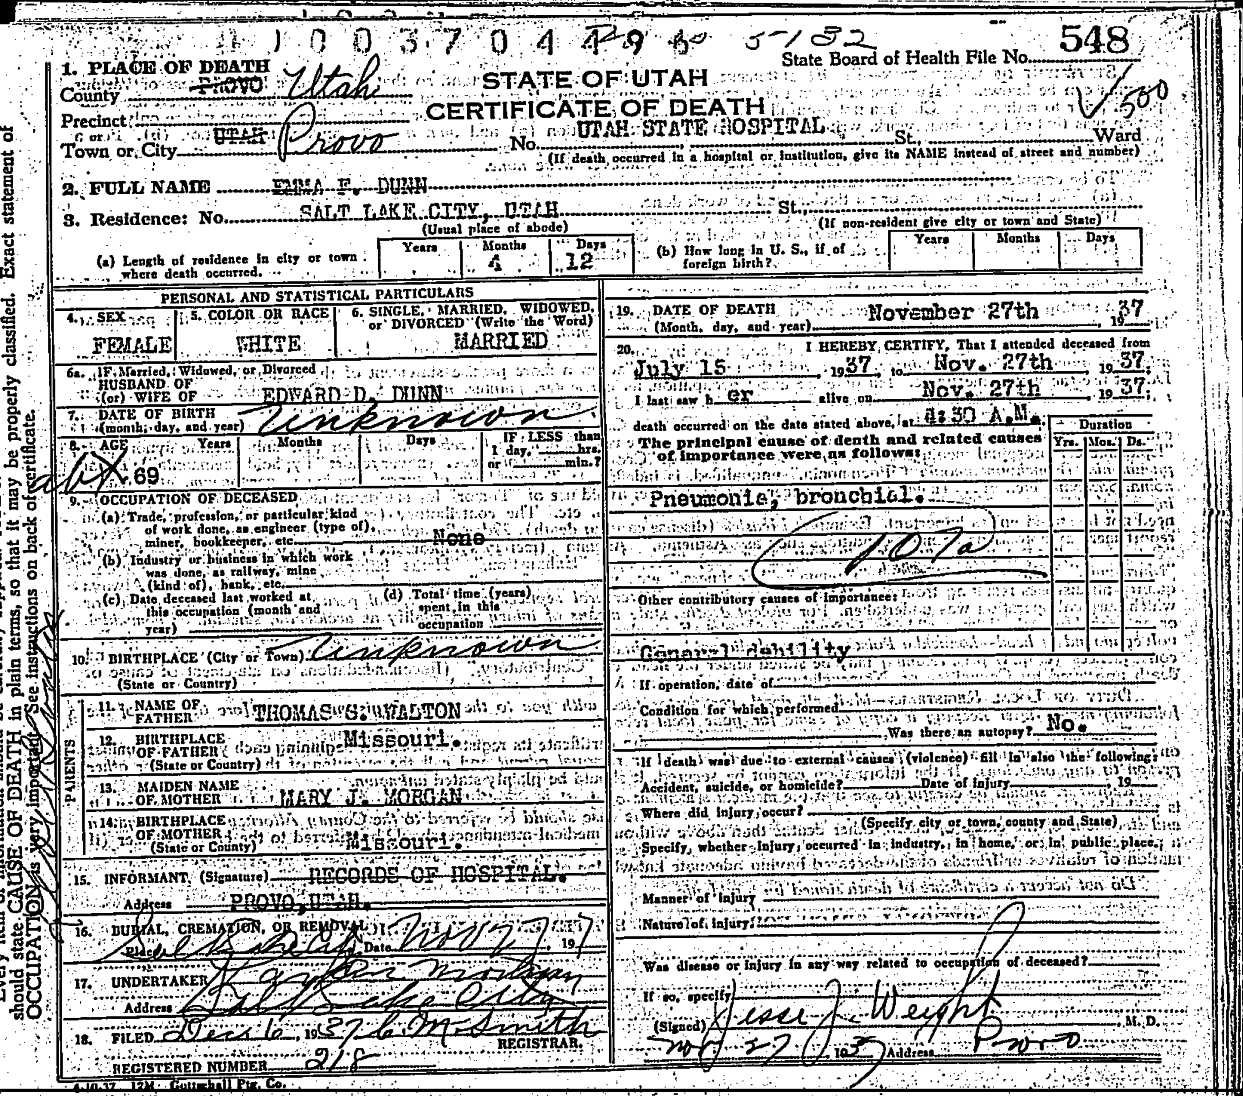 1003704496 5-132
548
State Board of Health File No.
1. PLACE OF DEATH
County PROVO Utah
STATE OF UTAH
CERTIFICATE OF DEATH
500
Precinct
or
Town or City UTAH Provo No. UTAH STATE HOSPITAL St., Ward
(If death occurred in a hospital or institution, give its NAME instead of street and number)
2. FULL NAME EMMA F. DUNN
3. Residence: No. SALT LAKE CITY, UTAH St.,
(Usual place of abode) (If non-resident give city or town and State)
(a) Length of residence in city or town where death occurred. Years Months 4 Days 12
(b) How long in U. S., if of foreign birth? Years Months Days
PERSONAL AND STATISTICAL PARTICULARS
4. SEX
FEMALE
5. COLOR OR RACE
WHITE
6. SINGLE, MARRIED, WIDOWED, or DIVORCED (Write the Word)
MARRIED
6a. If Married, Widowed, or Divorced
HUSBAND OF
(or) WIFE OF EDWARD D. DUNN
7. DATE OF BIRTH
(month, day, and year) Unknown
8. AGE Years Months Days IF LESS than
1 day, hrs.
or min.?
abt 69
9. OCCUPATION OF DECEASED
(a) Trade, profession, or particular kind
of work done, as engineer (type of),
miner, bookkeeper, etc. None
(b) Industry or business in which work
was done, as railway, mine
(kind of), bank, etc.
(c) Date deceased last worked at
this occupation (month and
year)
(d) Total time (years)
spent in this
occupation
10. BIRTHPLACE (City or Town) Unknown
(State or Country)
PARENTS
11. NAME OF
FATHER THOMAS S. WALTON
12. BIRTHPLACE
OF FATHER Missouri.
(State or Country)
13. MAIDEN NAME
OF MOTHER MARY J. MORGAN
14. BIRTHPLACE
OF MOTHER
(State or County) Missouri.
15. INFORMANT, (Signature) RECORDS OF HOSPITAL.
Address PROVO, UTAH.
16. BURIAL, CREMATION, OR REMOVAL
Place Salt Lake City Date Nov 27 1937
17. UNDERTAKER
Address Salt Lake City
18. FILED Dec 6 1937 C M Smith
REGISTRAR.
REGISTERED NUMBER 218
4-10-37 12M Gottschall Ptg. Co.
19. DATE OF DEATH
(Month, day, and year) November 27th, 1937
20. I HEREBY CERTIFY, That I attended deceased from
July 15, 1937, to Nov. 27th 1937,
I last saw her alive on Nov. 27th, 1937,
death occurred on the date stated above, at 4:30 A.M.
The principal cause of death and related causes
of importance were as follows:
Duration
Yrs. Mos. Ds.
Pneumonia, bronchial.
107a
Other contributory causes of importance:
General debility
If operation, date of
Condition for which performed
Was there an autopsy? No.
If death was due to external causes (violence) fill in also the following:
Accident, suicide, or homicide? Date of injury, 19
Where did injury occur?
(Specify city or town, county and State)
Specify, whether injury occurred in industry, in home, or in public place,
Manner of injury
Nature of injury
Was disease or injury in any way related to occupation of deceased?
If so, specify
(Signed) Jesse J. Weight, M. D.
Nov 27 1937 Address Provo
should state CAUSE OF DEATH in plain terms, so that it may be properly classified. Exact statement of
OCCUPATION is very important. See instructions on back of certificate.